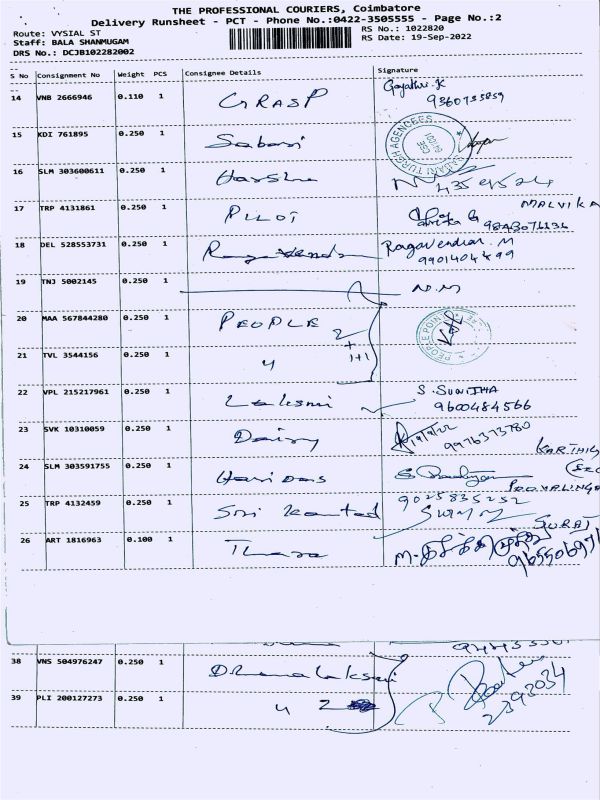 THE PROFESSIONAL COURIERS, Coimbatore
Delivery Runsheet - PCT - Phone No.:0422-3505555 - Page No.:2
Route: VYSIAL ST
RS No.: 1022820
Staff: BALA SHANMUGAM
RS Date: 19-Sep-2022
DRS No.: DCJB102282002
S No Consignment No Weight PCS Consignee Details Signature
14 VNB 2666946 0.110 1 GRASP Gayathri.K
9360735859
15 KDI 761895 0.250 1 Sabari SABARI TURBH AGENCEES CBE 641001
16 SLM 303600611 0.250 1 Harsha
17 TRP 4131861 0.250 1 PILOT MALVIKA
18 DEL 528553731 0.250 1 Ragavendra Ragavendran. M
9901404499
19 TNJ 5002145 0.250 1 N.M
20 MAA 567844280 0.250 1 PEOPLE 2 PEOPLE POINT
21 TVL 3544156 0.250 1 " 1+1
22 VPL 215217961 0.250 1 Laksmi S. SUNITHA
9600484566
23 SVK 10310059 0.250 1 Dairy 9976373780
24 SLM 303591755 0.250 1 Hari Das KARTHIG
25 TRP 4132459 0.250 1 Sri Kanted 9025835252
SURAJ
26 ART 1816963 0.100 1 Thara
38 VNS 504976247 0.250 1 Dhanalaksmi
39 PLI 200127273 0.250 1 " 2 2393034